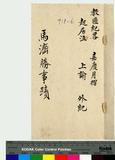 教匪紀畧 嘉慶月摺 外紀
起居注 上諭
馬濟勝事蹟
KODAK Color Control Patches